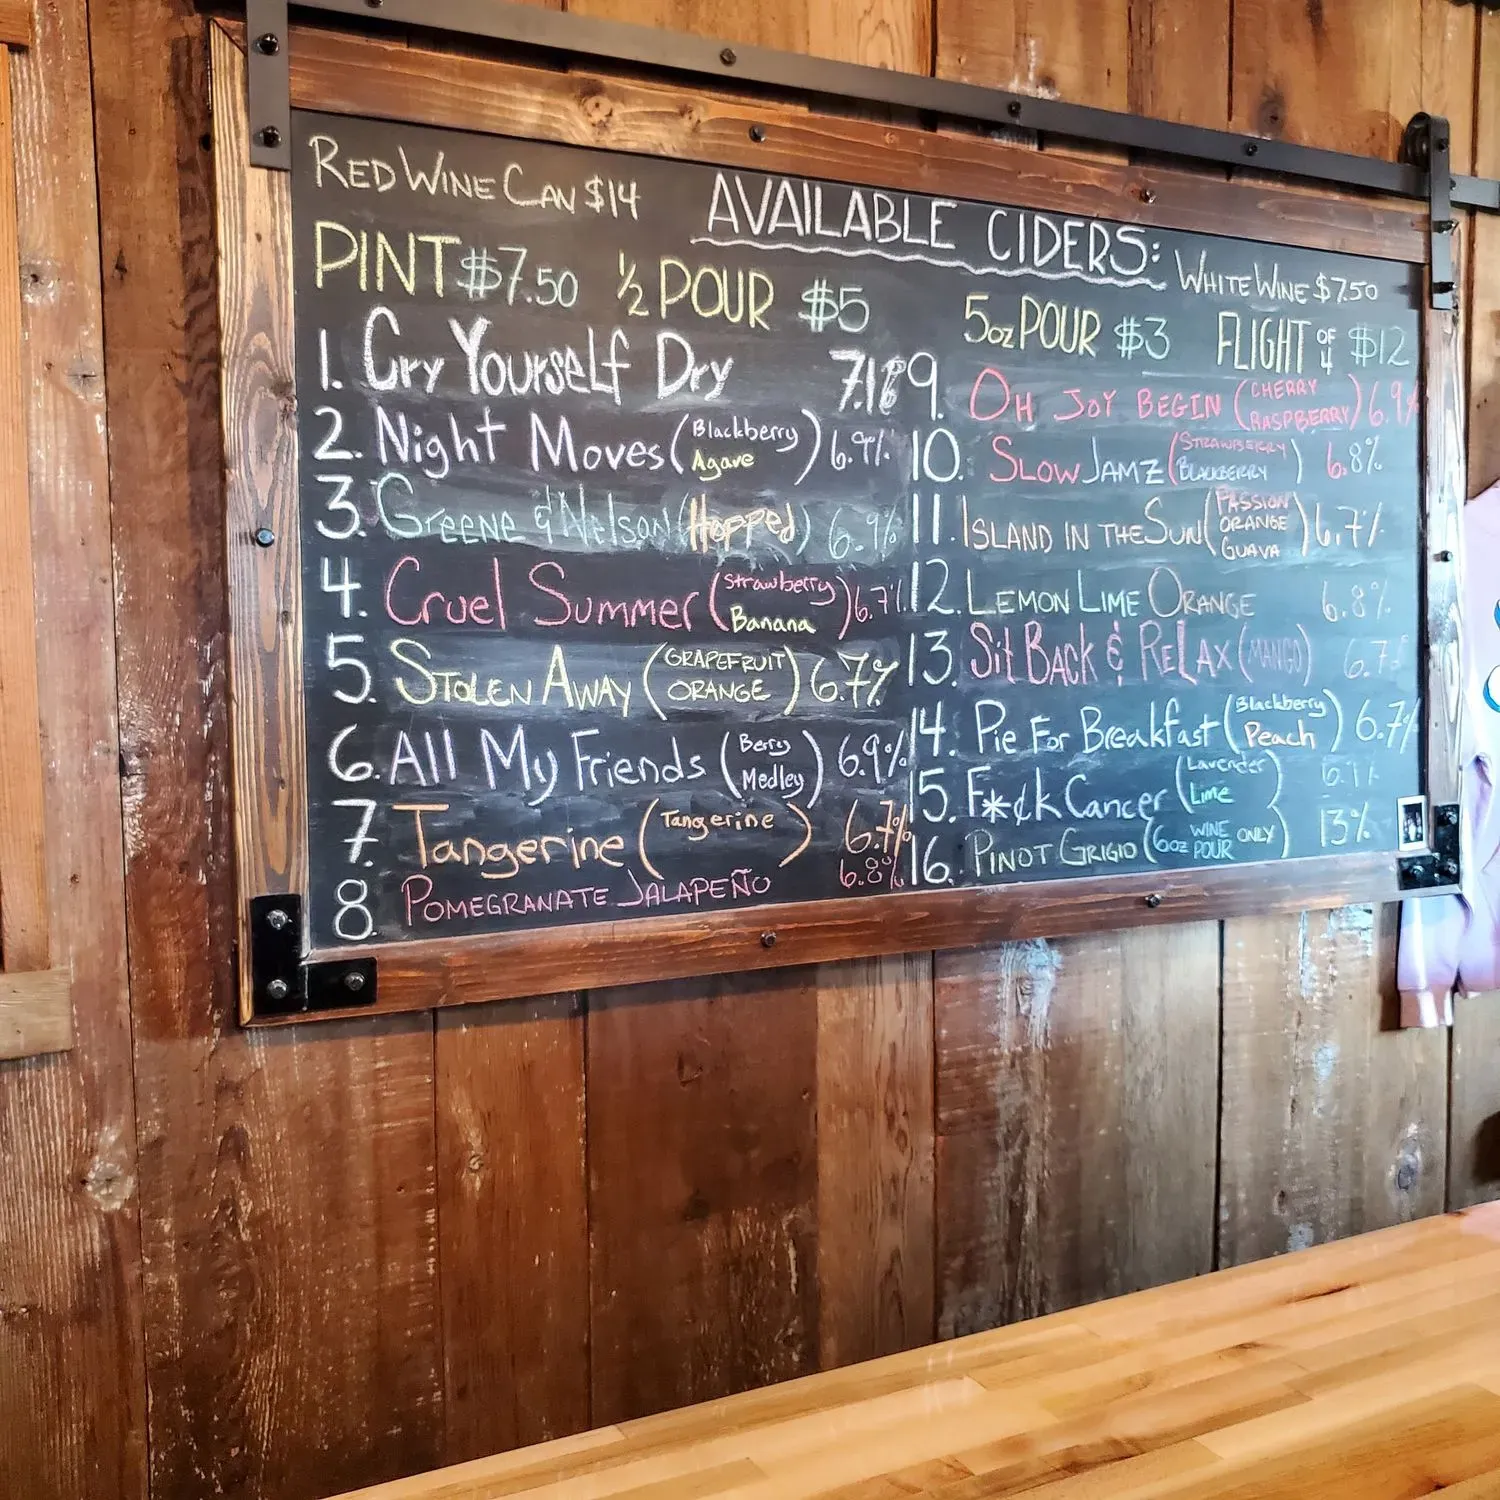 RED WINE CAN $14
AVAILABLE CIDERS:
WHITE WINE $7.50
PINT $7.50 ½ POUR $5
5oz POUR $3 FLIGHT OF 4 $12
1. Cry Yourself Dry
2. Night Moves (Blackberry Agave) 6.9%
3. Greene & Nelson (Hopped) 6.9%
4. Cruel Summer (Strawberry Banana) 6.7%
5. STOLEN AWAY (GRAPEFRUIT ORANGE) 6.7%
6. All My Friends (Berry Medley) 6.9%
7. Tangerine (Tangerine) 6.7%
8. POMEGRANATE JALAPEÑO 6.8%
9. OH JOY BEGIN (CHERRY RASPBERRY) 6.9%
10. SLOW JAMZ (STRAWBERRY BLACKBERRY) 6.8%
11. ISLAND IN THE SUN (PASSION ORANGE GUAVA) 6.7%
12. LEMON LIME ORANGE 6.8%
13. Sit BACK & RELAX (MANGO) 6.7%
14. Pie For Breakfast (Blackberry Peach) 6.7%
15. F*¢k Cancer (Lavender Lime)
16. PINOT GRIGIO (6oz WINE POUR ONLY) 13%